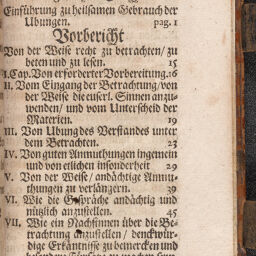 Einführung zu heilsamen Gebrauch der
Ubungen. pag. 1
Vorbericht
Von der Weise recht zu betrachten/ zu
beten und zu lesen. 15
I. Cap. Von erforderter Vorbereitung. 16
II. Vom Eingang der Betrachtung/ von
der Weise die euserl. Sinnen anzu-
wenden/ und vom Unterscheid der
Materien. 19
III. Von Ubung des Verstandes unter
dem Betrachten. 23
IV. Von guten Anmuthungen ingemein
und von etlichen insonderheit 29
V. Von der Weise/ andächtige Anmu-
thungen zu verlängern. 39
VI. Wie die Gespräche andächtig und
nützlich anzustellen. 45
VII. Wie ein Nachsinnen über die Be-
trachtung anzustellen/ denckwür-
dige Erkäntnisse zu bemercken und